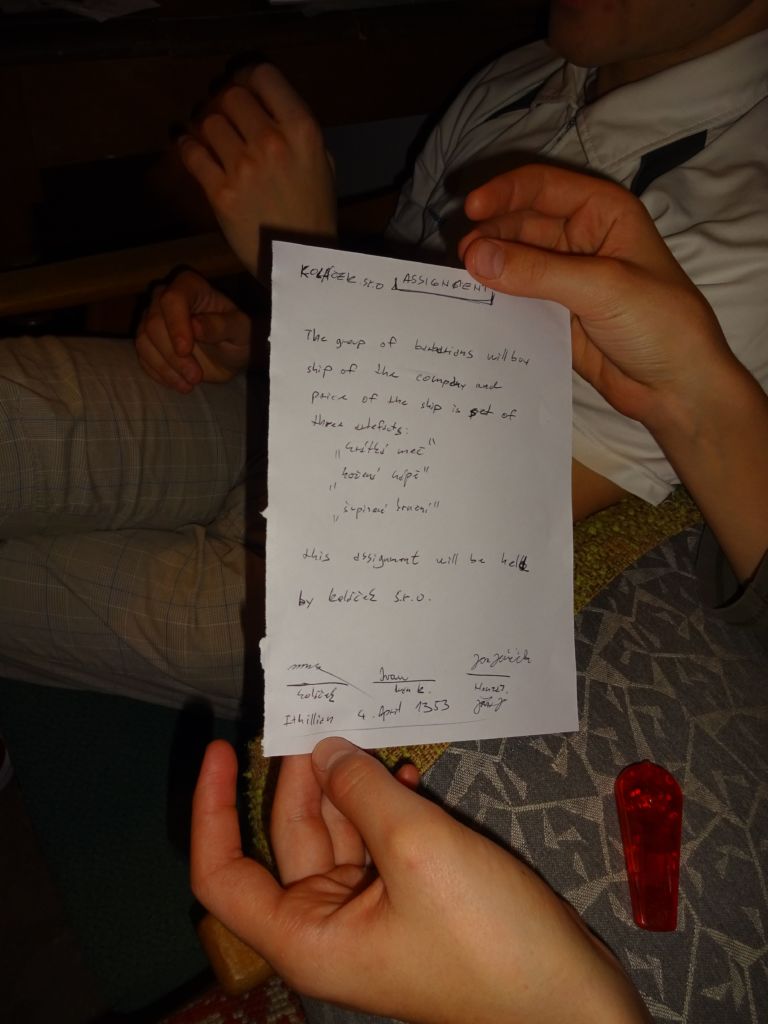 KOLÁČEK s.r.o ASSIGNMENT
The group of barbarians will buy
ship of the company and
price of the ship is set of
three artefacts:
„krátký meč"
„kožená kápě"
„šupinové brnění"
this assignment will be held
by koláček s.r.o.
Ivan Jan Jeníček
koláček Ivan K.
Ithillien 4. April 1353